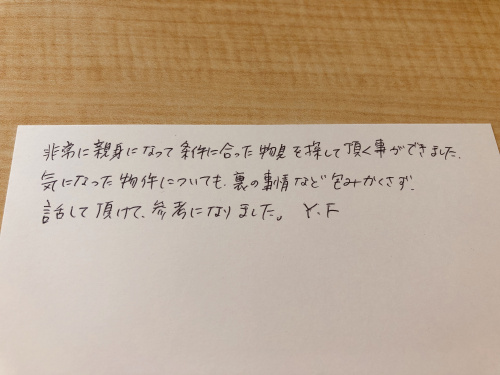 非常に親身になって条件に合った物見を探して頂く事ができました.
気になった物件についても、裏の事情など包みかくさず.
話して頂けて、参考になりました。 Y.F